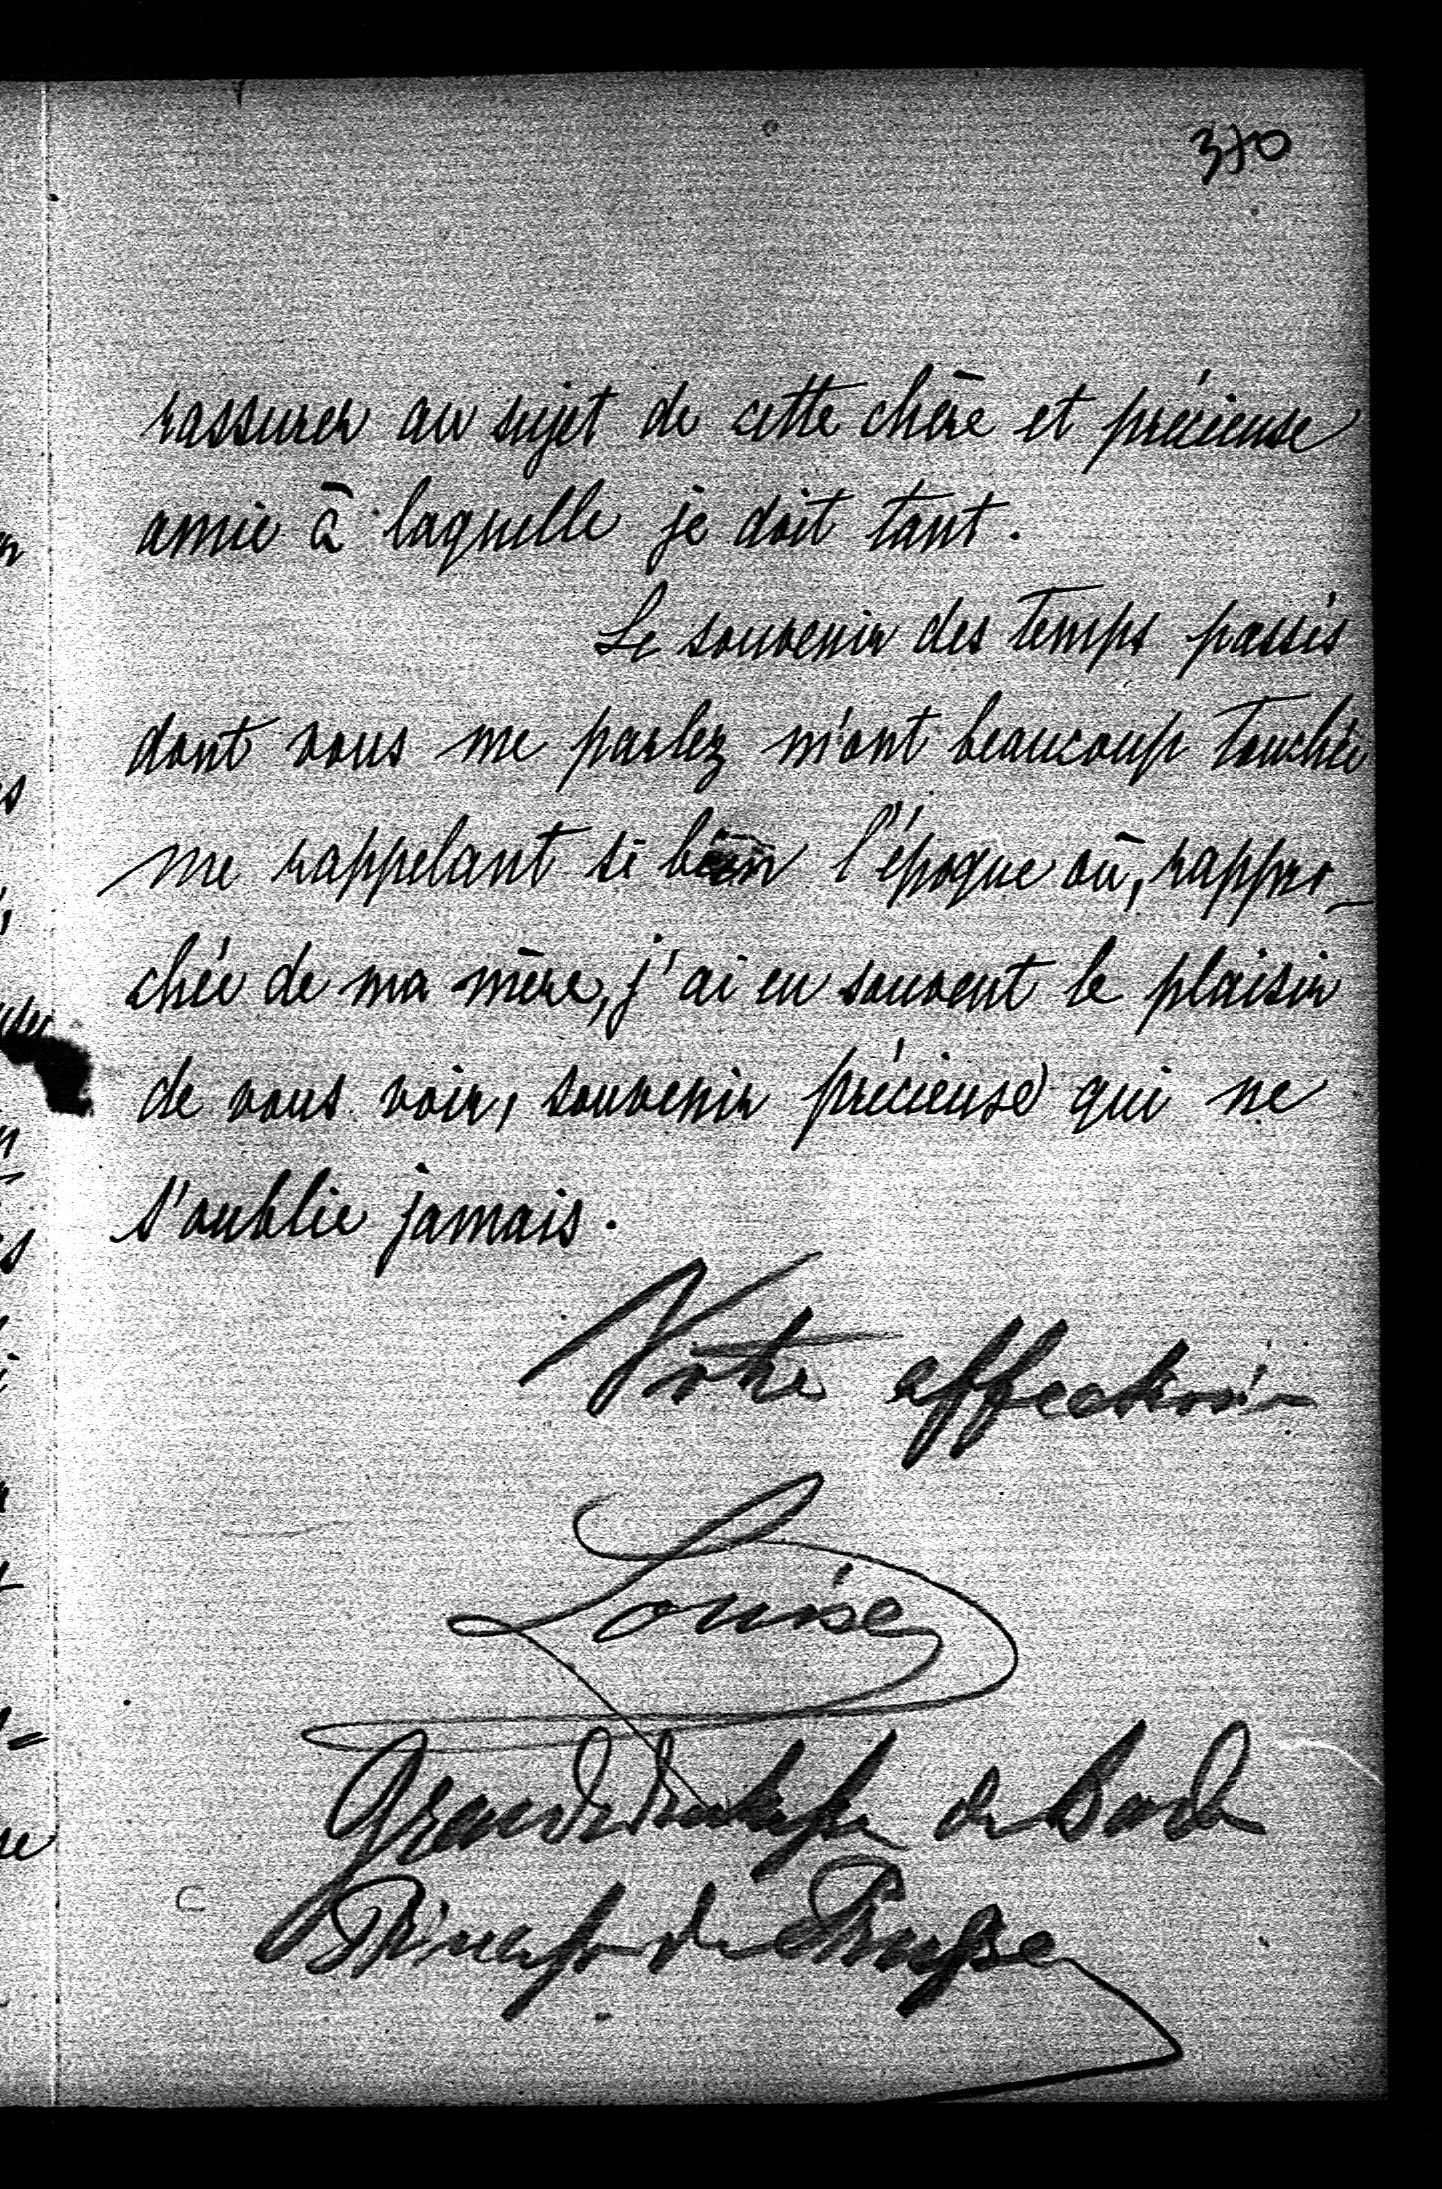 370
rassurer au sujet de cette chère et précieuse
amie à laquelle je doit tant.
Le souvenir des temps passés
dont vous me parlez m'ont beaucoup touchée
me rappelant si bien l'époque où, rappro-
chée de ma mère, j'ai eu souvent le plaisir
de vous voir, souvenir précieuse qui ne
s'oublie jamais.
Votre affection
Louise
Grande duchesse de Bade
Princesse de Prusse